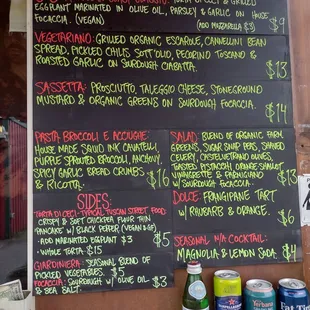 EGGPLANT MARINATED IN OLIVE OIL, PARSLEY & GARLIC ON HOUSE
FOCACCIA. (VEGAN) (ADD MOZZARELLA $3) $9
VEGETARIANO: GRILLED ORGANIC ESCAROLE, CANNELLINI BEAN
SPREAD, PICKLED CHILIS SOTT'OLIO, PECORINO TOSCANO &
ROASTED GARLIC ON SOURDOUGH CIABATTA. $13
SASSETTA: PROSCIUTTO, TALEGGIO CHEESE, STONEGROUND
MUSTARD & ORGANIC GREENS ON SOURDOUGH FOCACCIA. $14
PASTA BROCCOLI E ACCIUGHE:
HOUSE MADE SQUID INK CAVATELLI,
PURPLE SPROUTED BROCCOLI, ANCHOVY,
SPICY GARLIC BREAD CRUMBS
& RICOTTA. $16
SIDES:
TORTA DI CECI - TYPICAL TUSCAN STREET FOOD
CRISPY & SOFT CHICKPEA FLOUR THIN
PANCAKE W/ BLACK PEPPER (VEGAN & GF) $5
- ADD MARINATED EGGPLANT $3
- WHOLE TORTA $15
GIARDINIERA: SEASONAL BLEND OF
PICKLED VEGETABLES. $5
FOCACCIA: SOURDOUGH W/ OLIVE OIL $3
& SEA SALT.
SALAD: BLEND OF ORGANIC FARM
GREENS, SUGAR SNAP PEAS, SHAVED
CELERY, CASTELVETRANO OLIVES,
TOASTED PISTACHIO, ORANGE SHALLOT
VINAIGRETTE & PARMIGIANO
W/ SOURDOUGH FOCACCIA. $13
DOLCE: FRANGIPANE TART
W/ RHUBARB & ORANGE. $6
SEASONAL N/A COCKTAIL:
MAGNOLIA & LEMON SODA. $4